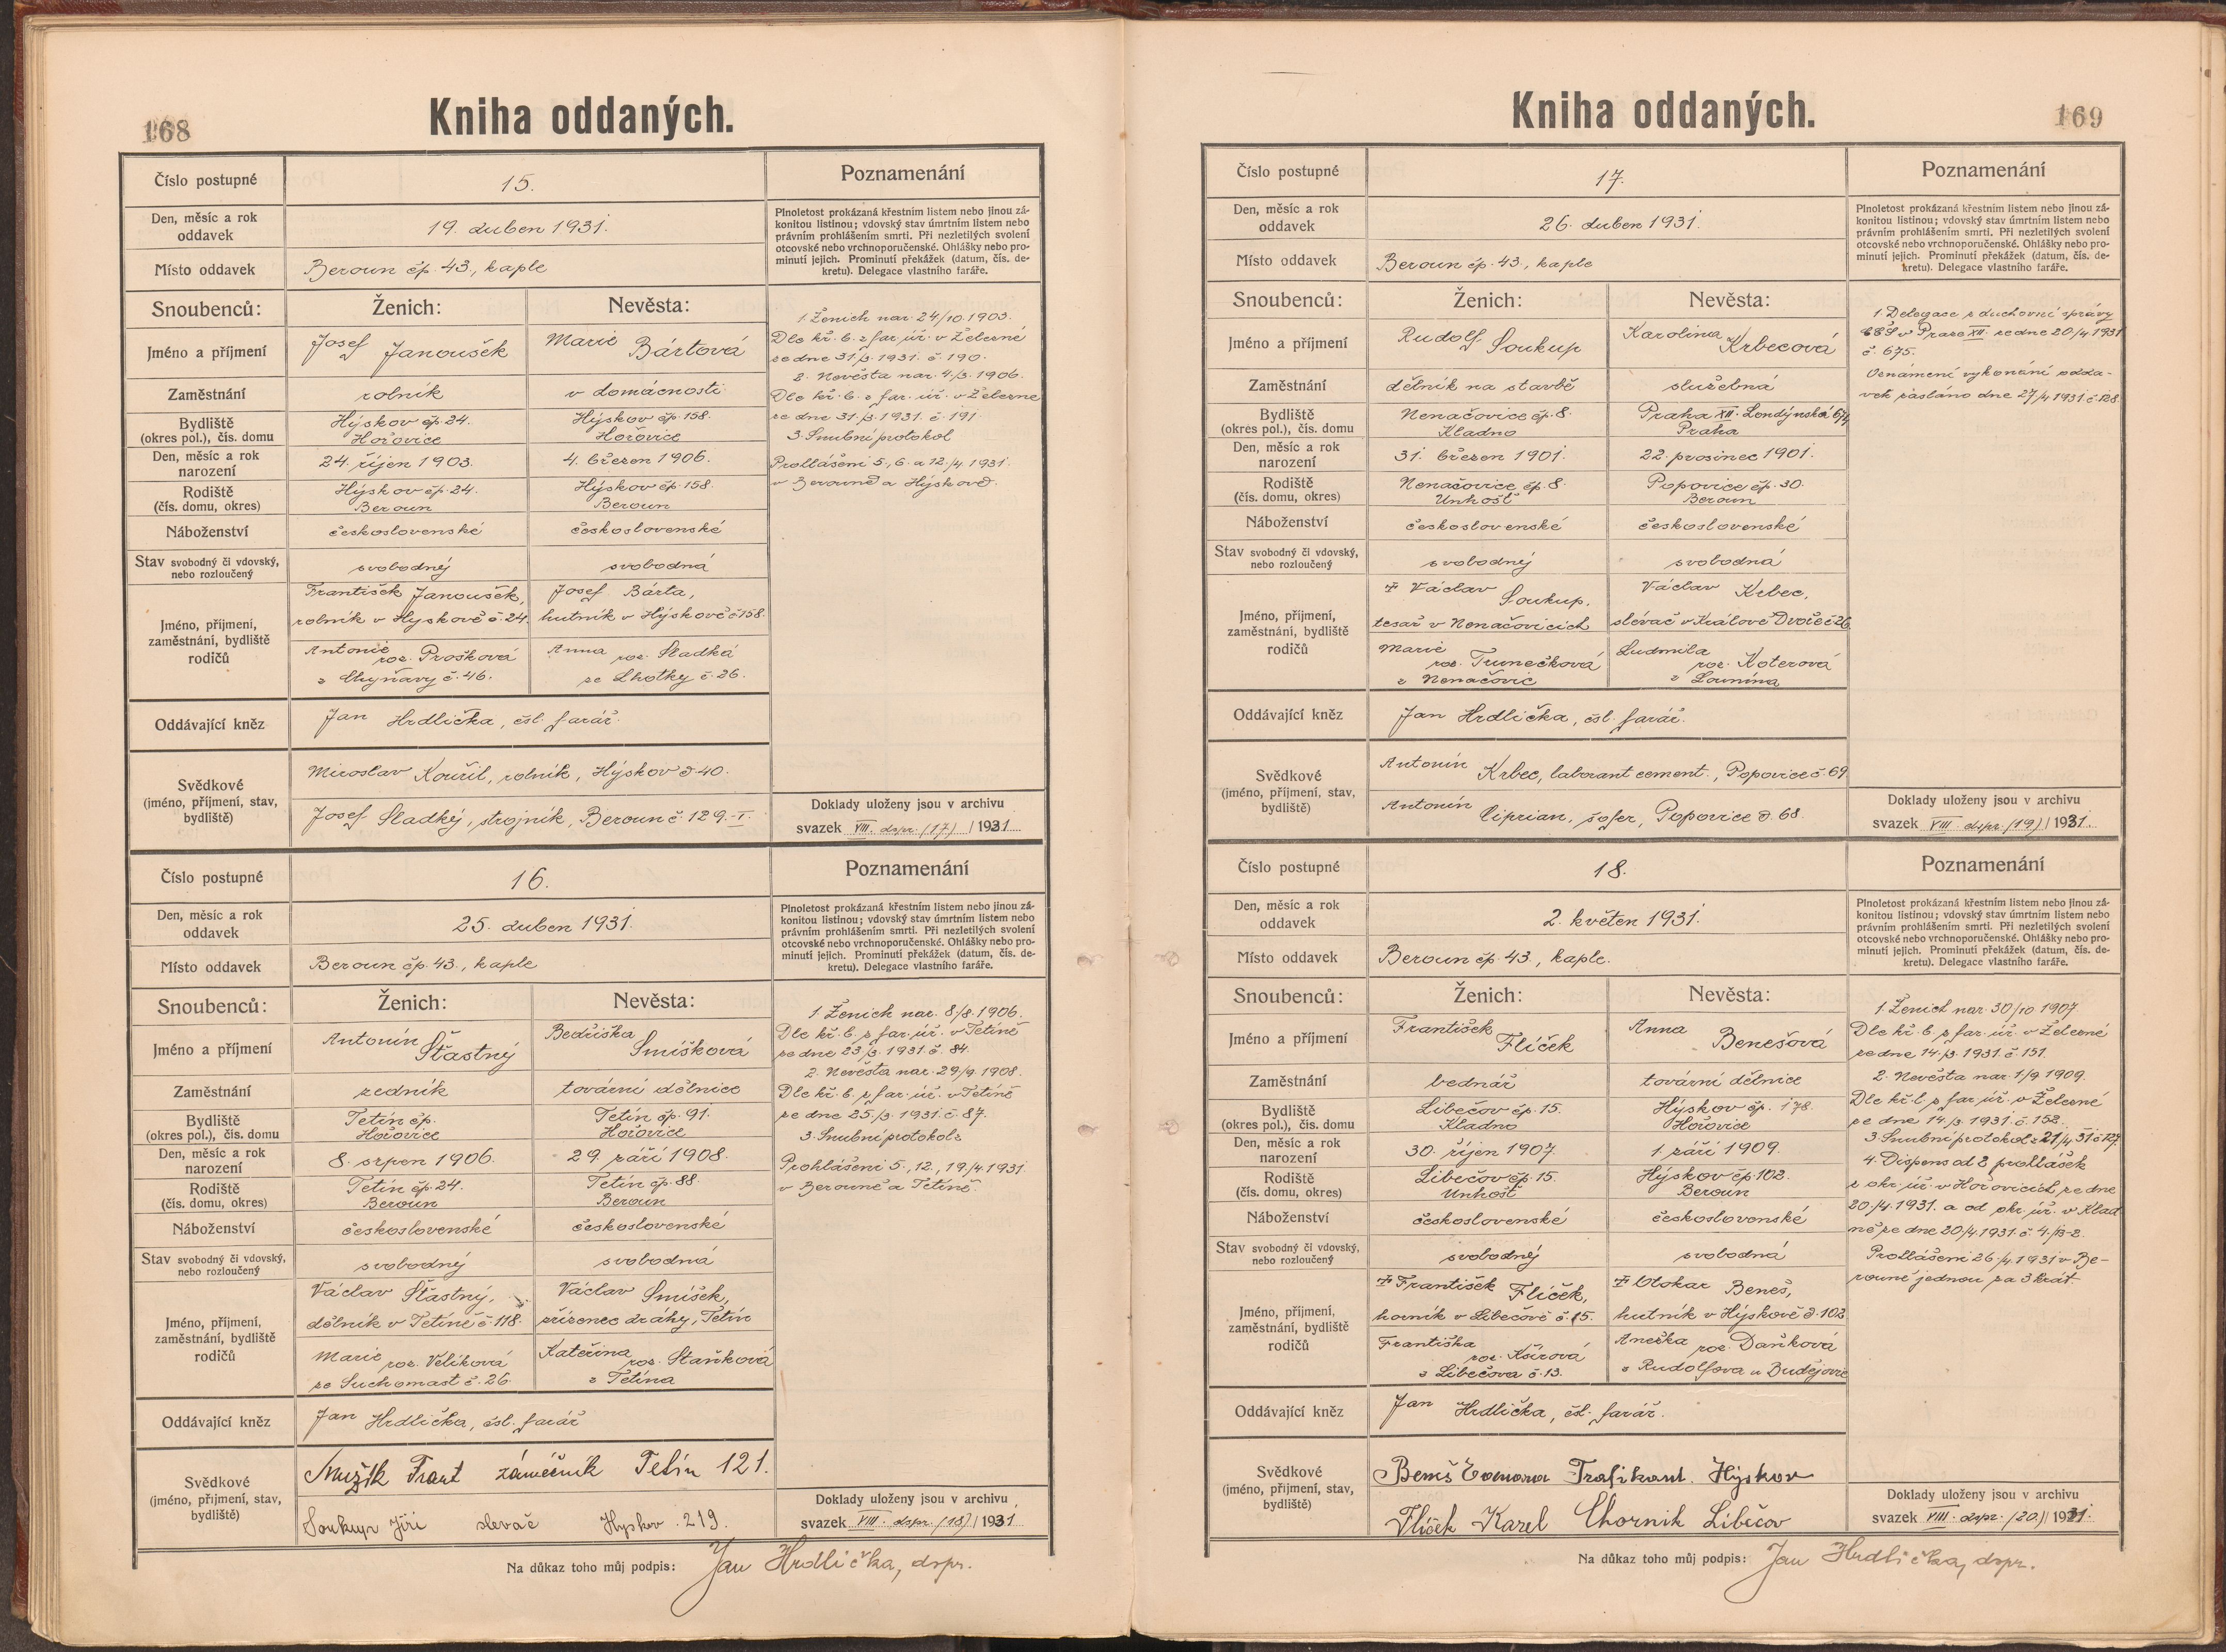 168
Kniha oddaných.
Číslo postupné
15.
Poznamenání
Den, měsíc a rok
oddavek
19. duben 1931.
Místo oddavek
Beroun čp. 43., kaple
Plnoletost prokázaná křestním listem nebo jinou zá-
konitou listinou; vdovský stav úmrtním listem nebo
právním prohlášením smrti. Při nezletilých svolení
otcovské nebo vrchnoporučenské. Ohlášky nebo pro-
minutí jejich. Prominutí překážek (datum, čís. de-
kretu). Delegace vlastního faráře.
Snoubenců:
Ženich:
Nevěsta:
Jméno a příjmení
Josef Janoušek
Marie Bártová
Zaměstnání
rolník
v domácnosti
Bydliště
(okres pol.), čís. domu
Hýskov čp. 24.
Hořovice
Hýskov čp. 158.
Hořovice
Den, měsíc a rok
narození
24. říjen 1903.
4. březen 1906.
Rodiště
(čís. domu, okres)
Hýskov čp. 24.
Beroun
Hýskov čp. 158.
Beroun
Náboženství
československé
československé
Stav svobodný či vdovský,
nebo rozloučený
svobodný
svobodná
Jméno, příjmení,
zaměstnání, bydliště
rodičů
František Janoušek,
rolník v Hýskově č. 24.
Josef Bárta,
hutník v Hýskově č 158.
Antonie
roz. Prošková
z Chyňavy č. 46.
Anna
roz. Sladká
ze Lhotky č. 26.
Oddávající kněz
Jan Hrdlička, čsl. farář.
Svědkové
(jméno, příjmení, stav,
bydliště)
Miroslav Kouřil, rolník, Hýskov č. 40.
Josef Sladký, strojník, Beroun č. 129.-I.
1. Ženich nar. 24/10. 1903.
Dle kř. l. z far. úř. v Železné
ze dne 31/3. 1931. č. 190.
2. Nevěsta nar. 4./3. 1906.
Dle kř. l. z far. úř. v Železné
ze dne 31/3. 1931. č. 191.
3. Snubní protokol
Prohlášeni 5., 6. a 12./4. 1931.
v Berouně a Hýskově.
Doklady uloženy jsou v archivu
svazek VIII. dspr. (17) / 1931
Číslo postupné
16.
Poznamenání
Den, měsíc a rok
oddavek
25. duben 1931.
Místo oddavek
Beroun čp. 43., kaple
Plnoletost prokázaná křestním listem nebo jinou zá-
konitou listinou; vdovský stav úmrtním listem nebo
právním prohlášením smrti. Při nezletilých svolení
otcovské nebo vrchnoporučenské. Ohlášky nebo pro-
minutí jejich. Prominutí překážek (datum, čís. de-
kretu). Delegace vlastního faráře.
Snoubenců:
Ženich:
Nevěsta:
Jméno a příjmení
Antonín Šťastný
Bedřiška Smíšková
Zaměstnání
zedník
tovární dělnice
Bydliště
(okres pol.), čís. domu
Tetín čp.
Hořovice
Tetín čp. 91.
Hořovice
Den, měsíc a rok
narození
8. srpen 1906.
29. září 1908.
Rodiště
(čís. domu, okres)
Tetín čp. 24.
Beroun
Tetín čp. 88.
Beroun
Náboženství
československé
československé
Stav svobodný či vdovský,
nebo rozloučený
svobodný
svobodná
Jméno, příjmení,
zaměstnání, bydliště
rodičů
Václav Šťastný,
dělník v Tetíně č. 118.
Václav Smíšek,
zřízenec dráhy, Tetín
Marie roz. Velíková
ze Suchomast č. 26.
Kateřina roz. Staňková
z Tetína
Oddávající kněz
Jan Hrdlička, čsl. farář
Svědkové
(jméno, příjmení, stav,
bydliště)
Mužík Frant zámečník Tetín 121.
Soukup Jiří slevač Hyskov 219.
1. Ženich nar. 8/8. 1906.
Dle kř. l. z far. úř. v Tetíně
ze dne 23/3. 1931. č. 84.
2. Nevěsta nar. 29/9. 1908.
Dle kř. l. z far. úř. v Tetíně
ze dne 25./3. 1931. č. 87.
3. Snubní protokol:
Prohlášeni 5., 12., 19/4. 1931.
v Berouně a Tetíně.
Doklady uloženy jsou v archivu
svazek VIII. dspr. (18) / 1931
Na důkaz toho můj podpis: Jan Hrdlička, dspr.
169
Kniha oddaných.
Číslo postupné
17.
Poznamenání
Den, měsíc a rok
oddavek
26. duben 1931.
Místo oddavek
Beroun čp. 43., kaple
Plnoletost prokázaná křestním listem nebo jinou zá-
konitou listinou; vdovský stav úmrtním listem nebo
právním prohlášením smrti. Při nezletilých svolení
otcovské nebo vrchnoporučenské. Ohlášky nebo pro-
minutí jejich. Prominutí překážek (datum, čís. de-
kretu). Delegace vlastního faráře.
Snoubenců:
Ženich:
Nevěsta:
Jméno a příjmení
Rudolf Soukup
Karolina Krbecová
Zaměstnání
dělník na stavbě
služebná
Bydliště
(okres pol.), čís. domu
Nenačovice čp. 8.
Kladno
Praha XII. Londýnská
Praha
Den, měsíc a rok
narození
31. březen 1901.
22. prosinec 1901.
Rodiště
(čís. domu, okres)
Nenačovice čp. 8.
Unhošť
Popovice čp. 30.
Beroun
Náboženství
československé
československé
Stav svobodný či vdovský,
nebo rozloučený
svobodný
svobodná
Jméno, příjmení,
zaměstnání, bydliště
rodičů
+ Václav Soukup,
tesař v Nenačovicích
Václav Krbec,
slévač v Králově Dvoře č 26.
Marie
roz. Tunečková
z Nenačovic
Ludmila
roz. Koterová
z Lounína
Oddávající kněz
Jan Hrdlička, čsl. farář.
Svědkové
(jméno, příjmení, stav,
bydliště)
Antonín Krbec, laborant cement., Popovice č. 69
Antonín Ciprian, šofer, Popovice č. 68.
1. Delegace z duchovní správy
CČS v Praze XII. ze dne 20/4. 1931
č. 675.
Oznámení vykonání odda-
vek zasláno dne 27/4 1931 č 128.
Doklady uloženy jsou v archivu
svazek VIII. dspr. (19) / 1931.
Číslo postupné
18.
Poznamenání
Den, měsíc a rok
oddavek
2. květen 1931.
Místo oddavek
Beroun čp. 43., kaple.
Plnoletost prokázaná křestním listem nebo jinou zá-
konitou listinou; vdovský stav úmrtním listem nebo
právním prohlášením smrti. Při nezletilých svolení
otcovské nebo vrchnoporučenské. Ohlášky nebo pro-
minutí jejich. Prominutí překážek (datum, čís. de-
kretu). Delegace vlastního faráře.
Snoubenců:
Ženich:
Nevěsta:
Jméno a příjmení
František Flíček
Anna Benešová
Zaměstnání
bednář
tovární dělnice
Bydliště
(okres pol.), čís. domu
Libečov čp. 15.
Kladno
Hýskov čp. 178.
Hořovice
Den, měsíc a rok
narození
30. říjen 1907.
1. září 1909.
Rodiště
(čís. domu, okres)
Libečov čp. 15.
Unhošť
Hýskov čp. 102.
Beroun
Náboženství
československé
československé
Stav svobodný či vdovský,
nebo rozloučený
svobodný
svobodná
Jméno, příjmení,
zaměstnání, bydliště
rodičů
+ František Flíček,
horník v Libečově č. 15.
+ Otokar Beneš,
hutník v Hýskově č. 102
Františka
roz. Kšírová
z Libečova č. 13.
Anežka roz. Daňková
z Rudolfova u Budějovic
Oddávající kněz
Jan Hrdlička, čsl. farář.
Svědkové
(jméno, příjmení, stav,
bydliště)
Beneš Trafikant. Hýskov
Flíček Karel Chorník Libečov
1. Ženich nar. 30/10 1907.
Dle kř. l. z far. úř. v Železné
ze dne 14./3. 1931. č. 151.
2. Nevěsta nar. 1/9. 1909.
Dle kř. l. z far. úř. v Železné
ze dne 14/3. 1931. č. 152.
3. Snubní protokol z 21/4. 31 č 127.
4. Dispens od 2 prohlášek
z okr. úř. v Hořovicích ze dne
20./4. 1931. a od okr. úř. v Klad
ně ze dne 20/4. 1931. č. 4./B-2.
Prohlášeni 26./4. 1931 v Be-
rouně jednou za 3 krát.
Doklady uloženy jsou v archivu
svazek VIII. dspr. (20.) / 1931.
Na důkaz toho můj podpis: Jan Hrdlička, dspr.